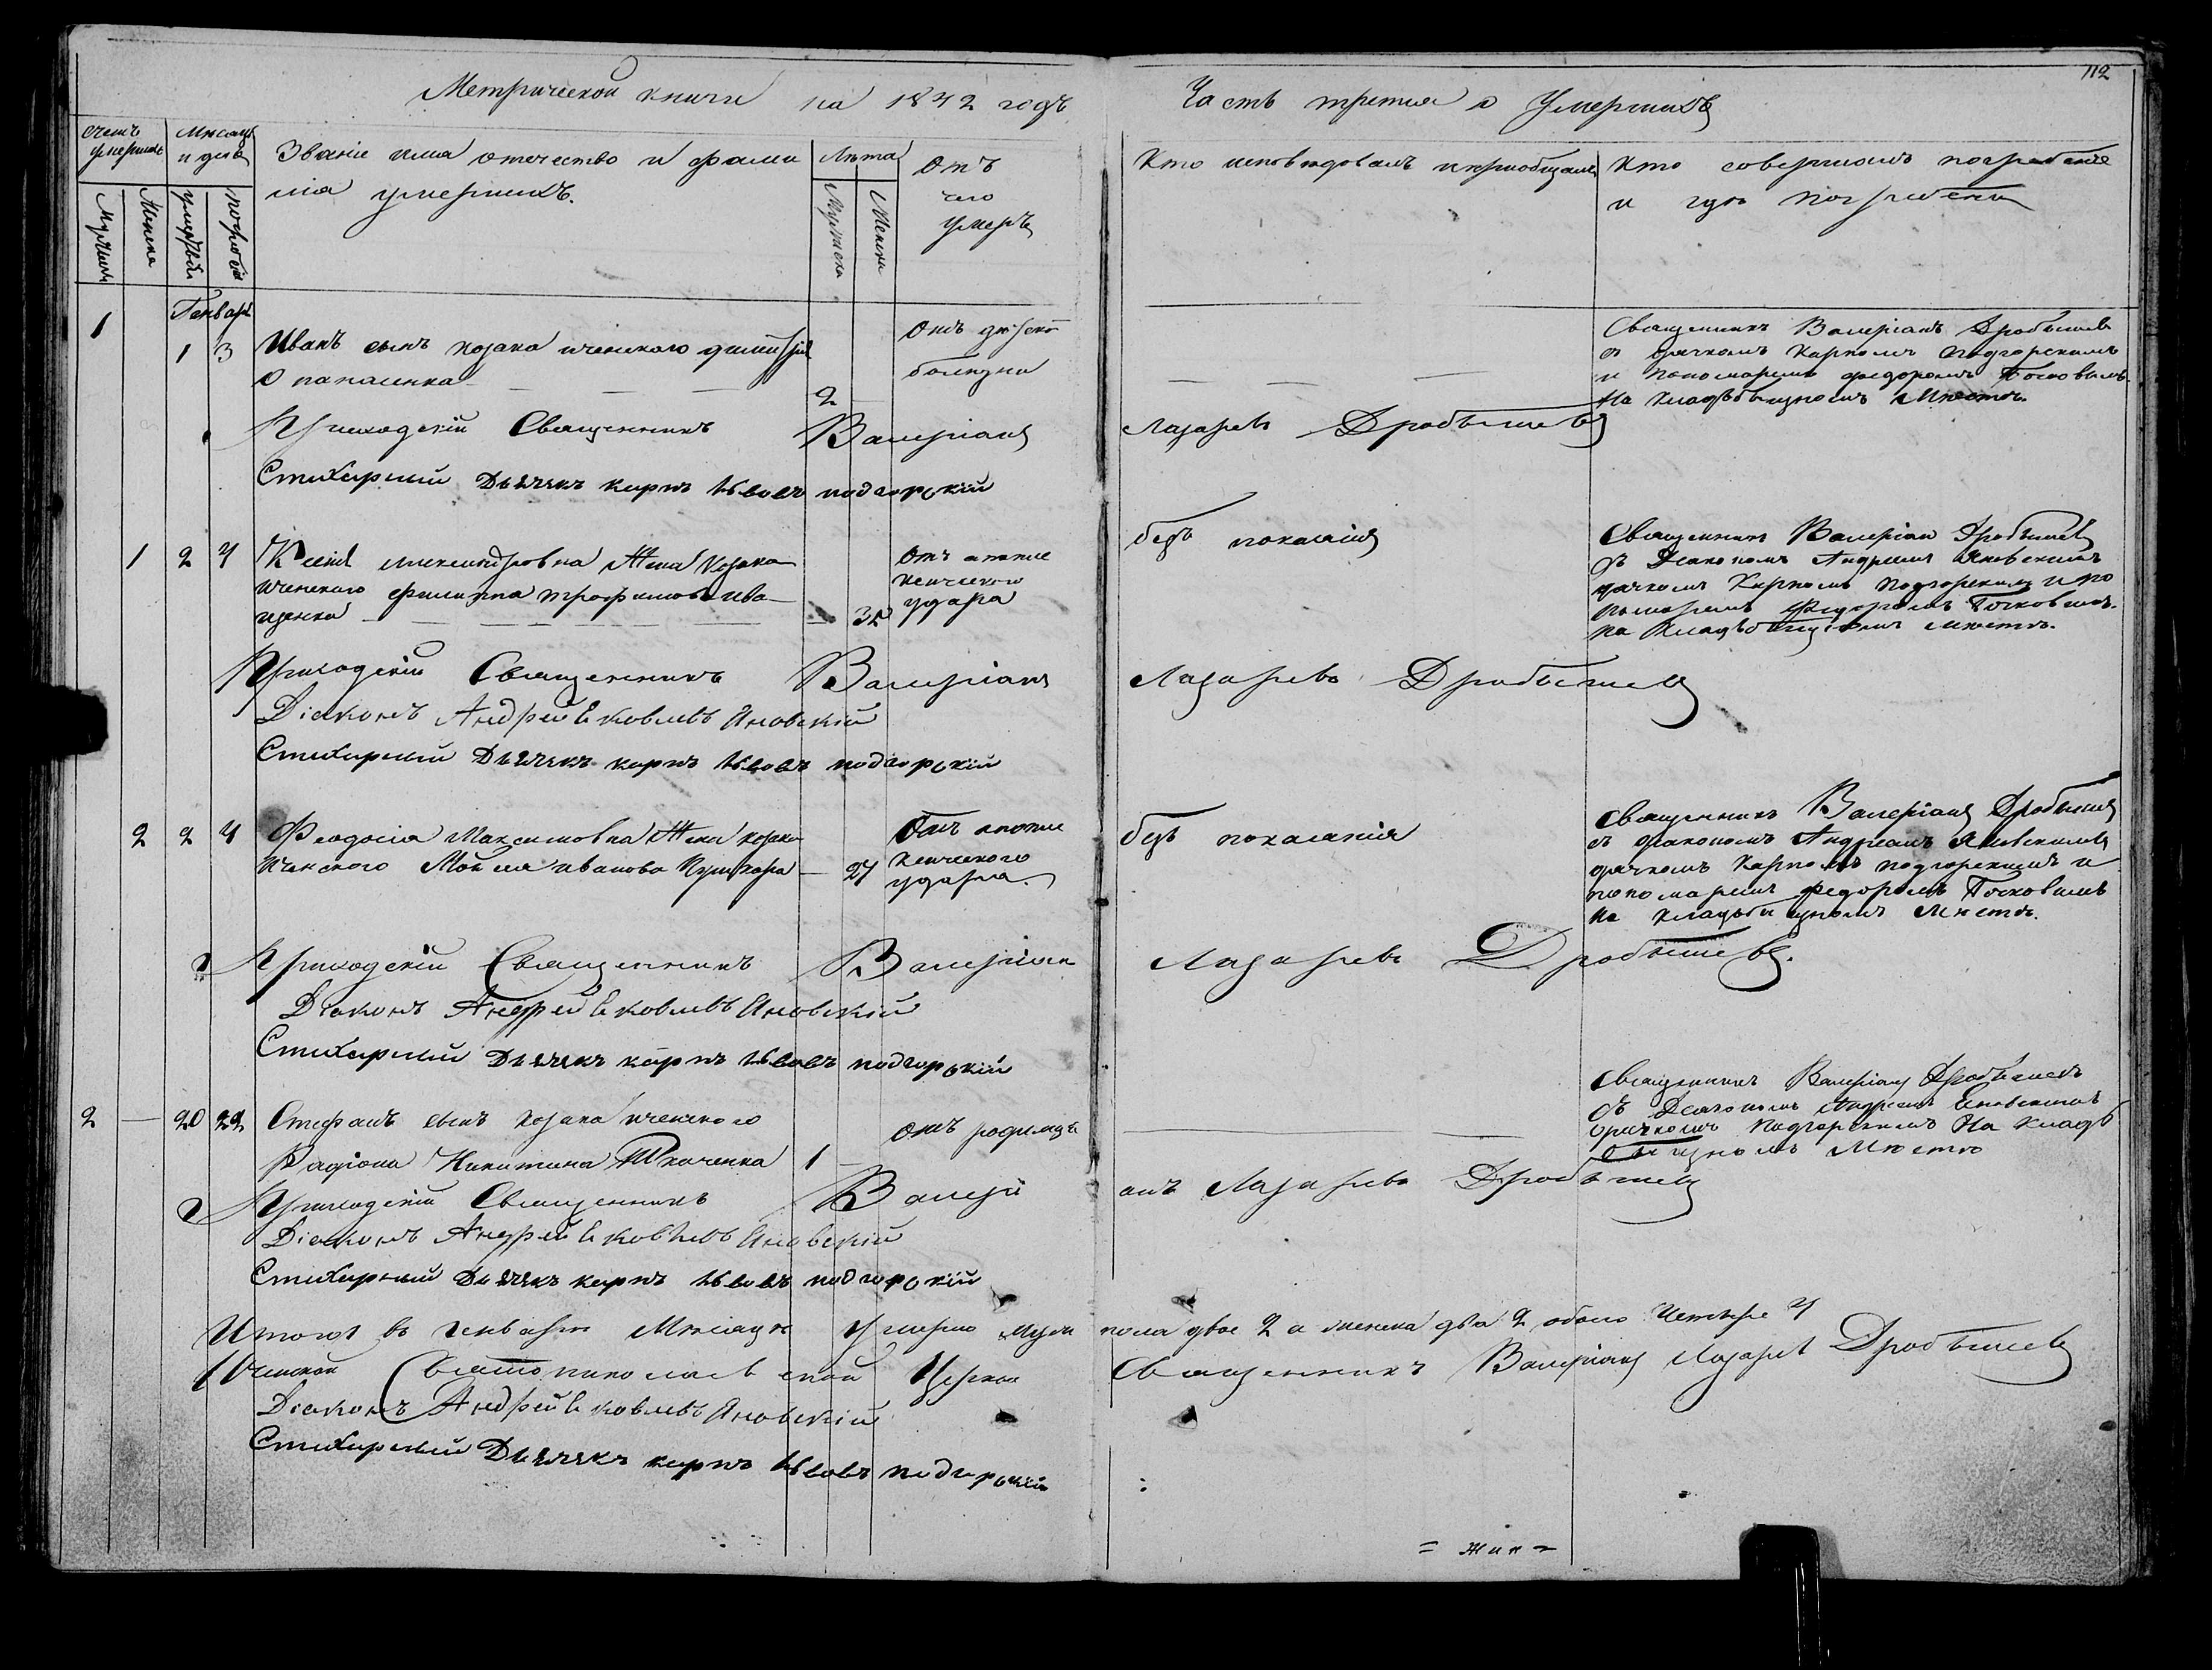 Метрической книги на 1842 годъ
Часть третия о Умершихъ
112
счетъ умершихъ
Мужеска
Женска
Месяцъ и день
умертвія
погребенія
Званіе имя отечество и фами
лія умершихъ.
Лѣта
Мужеска
Женска
Отъ
чего
умеръ
Кто исповѣдовалъ и приобщалъ
Кто совершалъ погребеніе
и гдѣ погребены
Генварь
1 1 3 Иванъ сынъ козака иченского Димитрія
Опанасенка 2
Отъ дѣтской
болезни
Священникъ Валеріанъ Дробышевъ
съ дячкомъ Карпомъ Подгорскимъ
и пономаремъ Федоромъ
на кладъбищномъ Мѣсте.
Приходскій Священникъ Валеріанъ Лазаревъ Дробышевъ
Стихарный Дьячекъ карпъ Іевовъ подгорскій
1 2 4 Александровна Жена Козака
иченского Филиппа Трофимова Ива
щенка 35
Отъ апопле
ксического
удара
безъ покаянія
Священникъ Валеріанъ Дробышевъ
съ Діакономъ Андреемъ Яновскимъ
дячкомъ Карпомъ Подгорскимъ и по
номаремъ Федоромъ
на кладъбищномъ мѣсте.
Приходскій Священникъ Валеріанъ Лазаревъ Дробышевъ
Діаконъ Андрей Яковлевъ Яновскій
Стихарный Дьячекъ карпъ Іевовъ подгорскій
2 2 4 Феодосія Максимовна Жена козака
Иченского Мойсея Иванова Пушкара 27
Отъ апопле
ксического
удара.
безъ покаянія
Священникъ Валеріанъ Дробышевъ
съ діакономъ Андреемъ Яновскимъ
дячкомъ Карпомъ подгорскимъ и
пономаремъ Федоромъ
на кладъбищномъ Мѣсте.
Приходскій Священникъ Валеріанъ Лазаревъ Дробышевъ.
Діаконъ Андрей Яковлевъ Яновскій
Стихарный Дьячекъ карпъ Іевовъ подгорскій
2 20 22 Стефанъ сынъ козака иченского
Радіона Никитина Ткаченка 1
отъ родимца
Священникъ Валеріанъ Дробышевъ
съ Діакономъ Андреемъ Яновскимъ
дячкомъ Подгорскимъ На кладъ
бищномъ Мѣсте
Приходскій Священникъ Валері анъ Лазаревъ Дробышевъ
Діаконъ Андрей Яковлевъ Яновскій
Стихарный Дьячекъ карпъ Іевовъ подгорскій
Итого въ генварѣ Мѣсяце Умерло муж пола двое 2 а женска два 2, обоего Четыре 4
Иченской Святониколаевской Церкви Священникъ Валеріанъ Лазаревъ Дробышевъ
Діаконъ Андрей Яковлевъ Яновскій
Стихарный Дьячекъ карпъ Іевовъ подгорскій